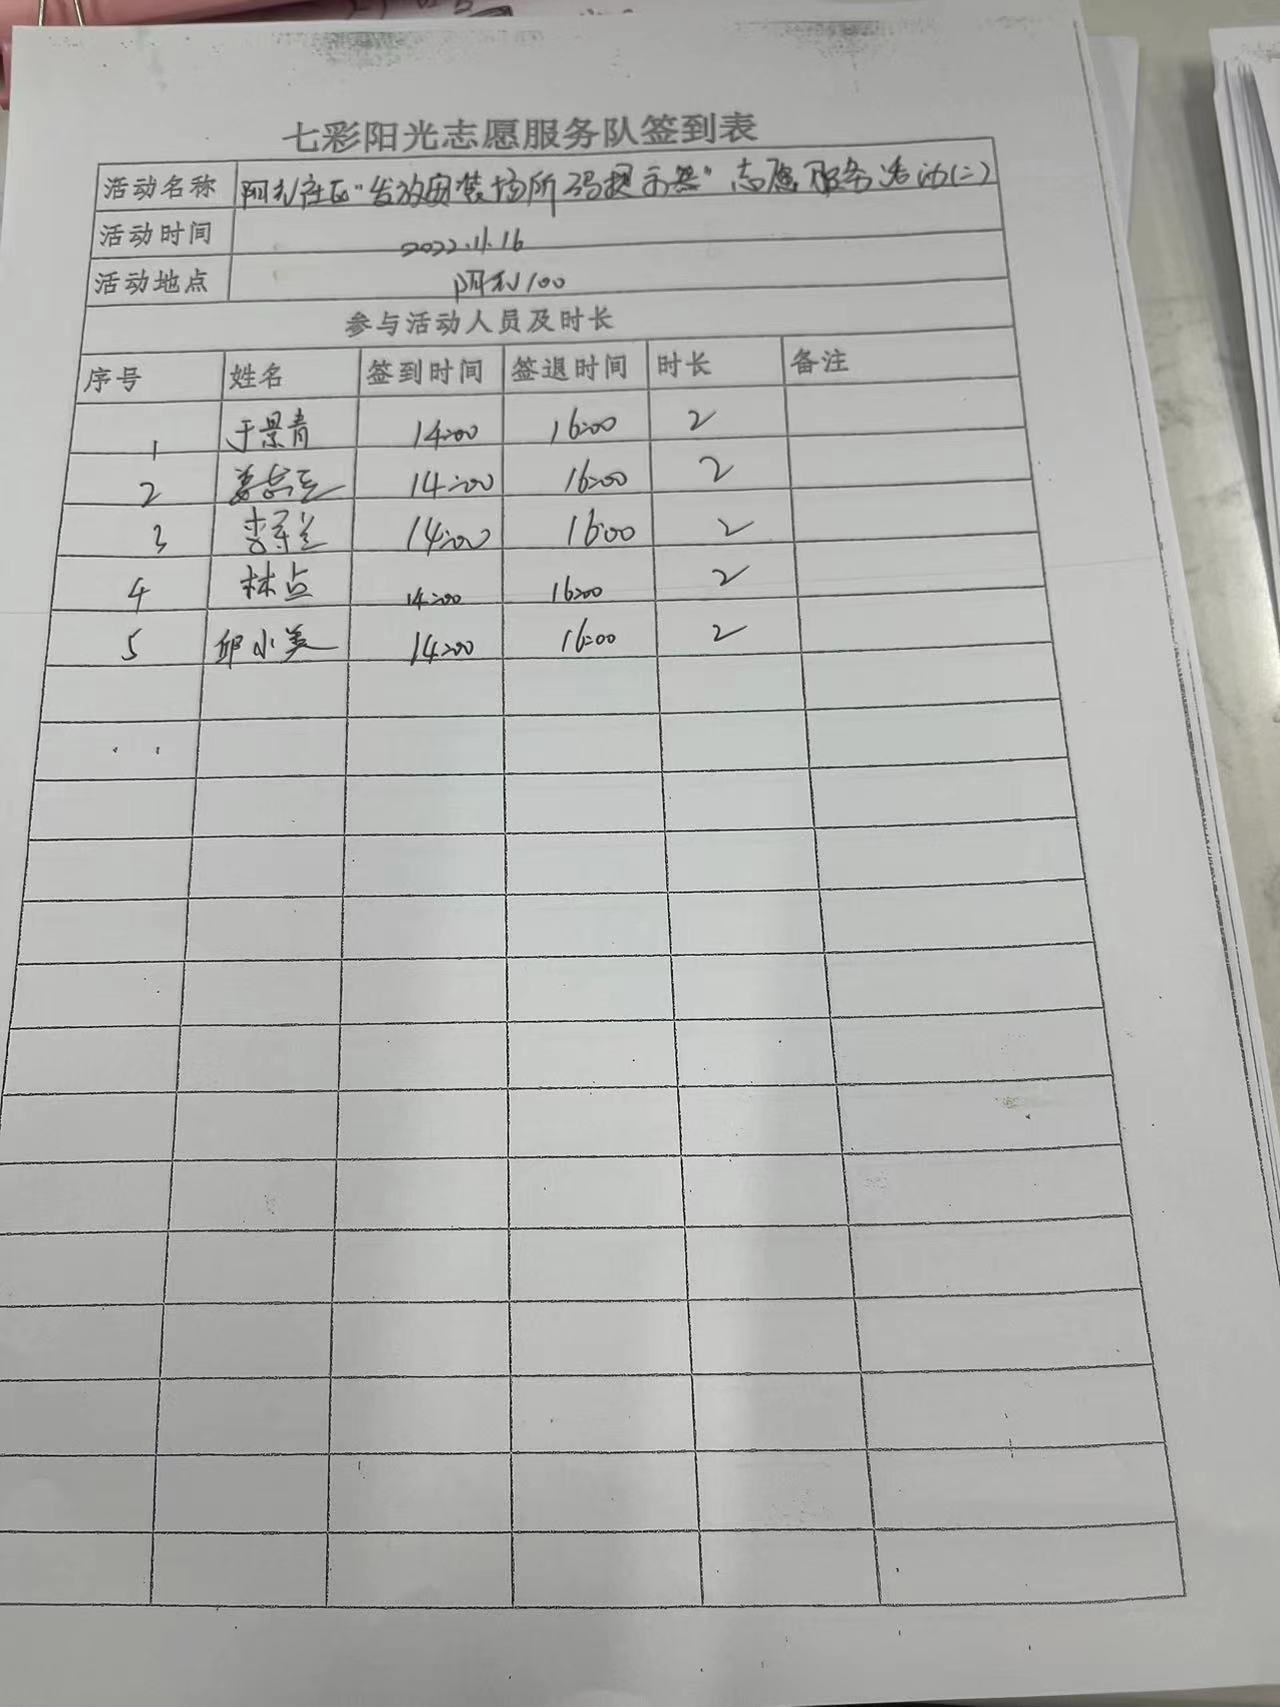 七彩阳光志愿服务队签到表
活动名称 阿利社区"发放安装场所码提示器"志愿服务活动(二)
活动时间 2022.11.16
活动地点 阿利100
参与活动人员及时长
序号 姓名 签到时间 签退时间 时长 备注
1 于景青 14:00 16:00 2
2 14:00 16:00 2
3 14:00 16:00 2
4 林占 14:00 16:00 2
5 邱小美 14:00 16:00 2